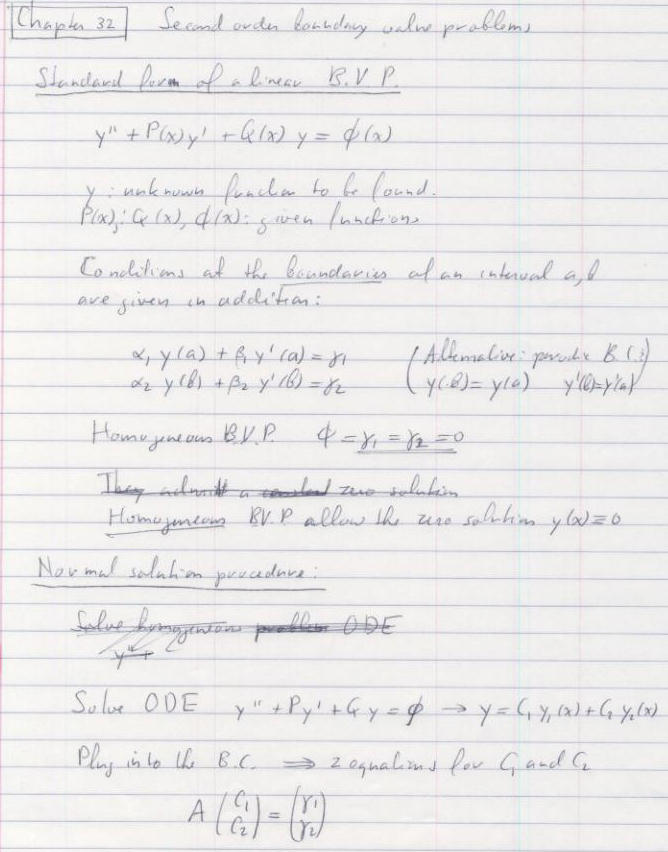 Chapter 32 Second order boundary value problems
Standard form of a linear B.V.P.
y'' + P(x) y' + Q(x) y = ϕ(x)
y : unknown function to be found.
P(x), Q(x), ϕ(x): given functions
Conditions at the boundaries of an interval a, b
are given in addition:
α₁ y(a) + β₁ y'(a) = γ₁ (Alternative: periodic B.C.:)
α₂ y(b) + β₂ y'(b) = γ₂ (y(b) = y(a) y'(b)=y'(a))
Homogeneous B.V.P. ϕ = γ₁ = γ₂ = 0
They admit a zero solution
Homogeneous BV.P allow the zero solution y(x) ≡ 0
Normal solution procedure:
Solve homogeneous problem ODE
y'' +
Solve ODE y'' + Py' + Qy = ϕ → y = C₁ y₁(x) + C₂ y₂(x)
Plug into the B.C. ⇒ 2 equations for C₁ and C₂
A (C₁ C₂) = (γ₁ γ₂)